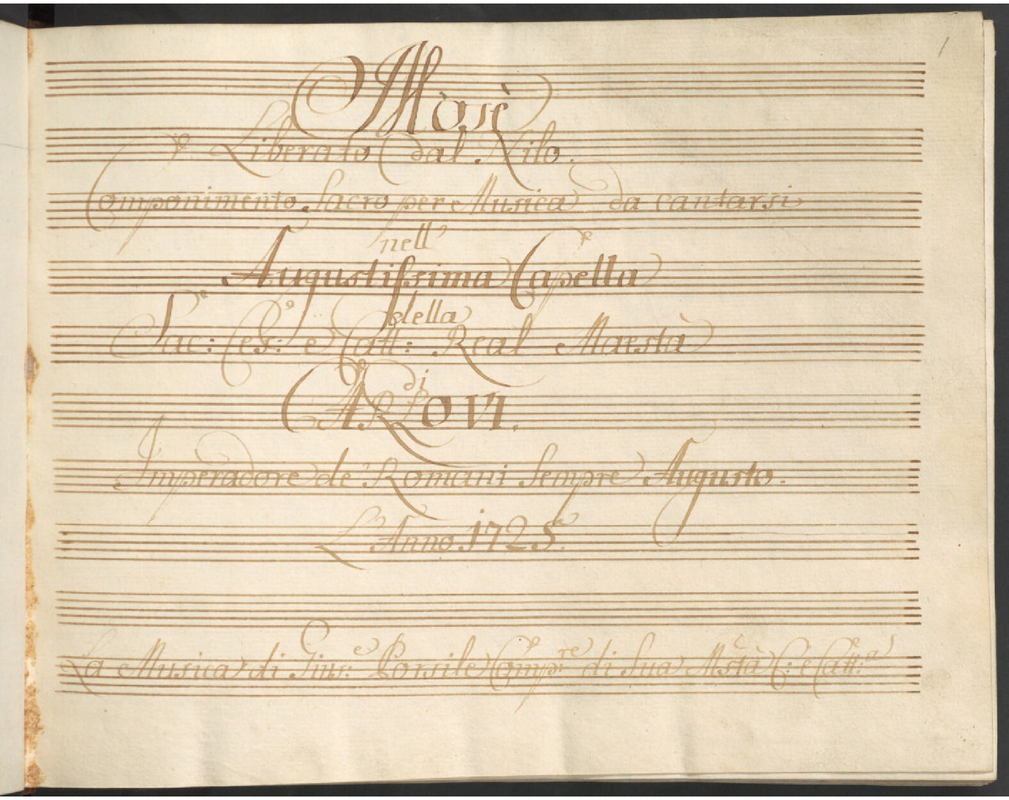 1
Mosè
Liberato dal Nilo.
Componimento Sacro per Musica da cantarsi
nell'
Augustissima Capella
della
Sac: Ces: e Catt: Real Maestà
di
CARLO VI.
Imperadore de' Romani Sempre Augusto.
L'Anno 1725.
La Musica di Gius:e Porsile Comp:re di Sua Mstà C: e Catt:ca